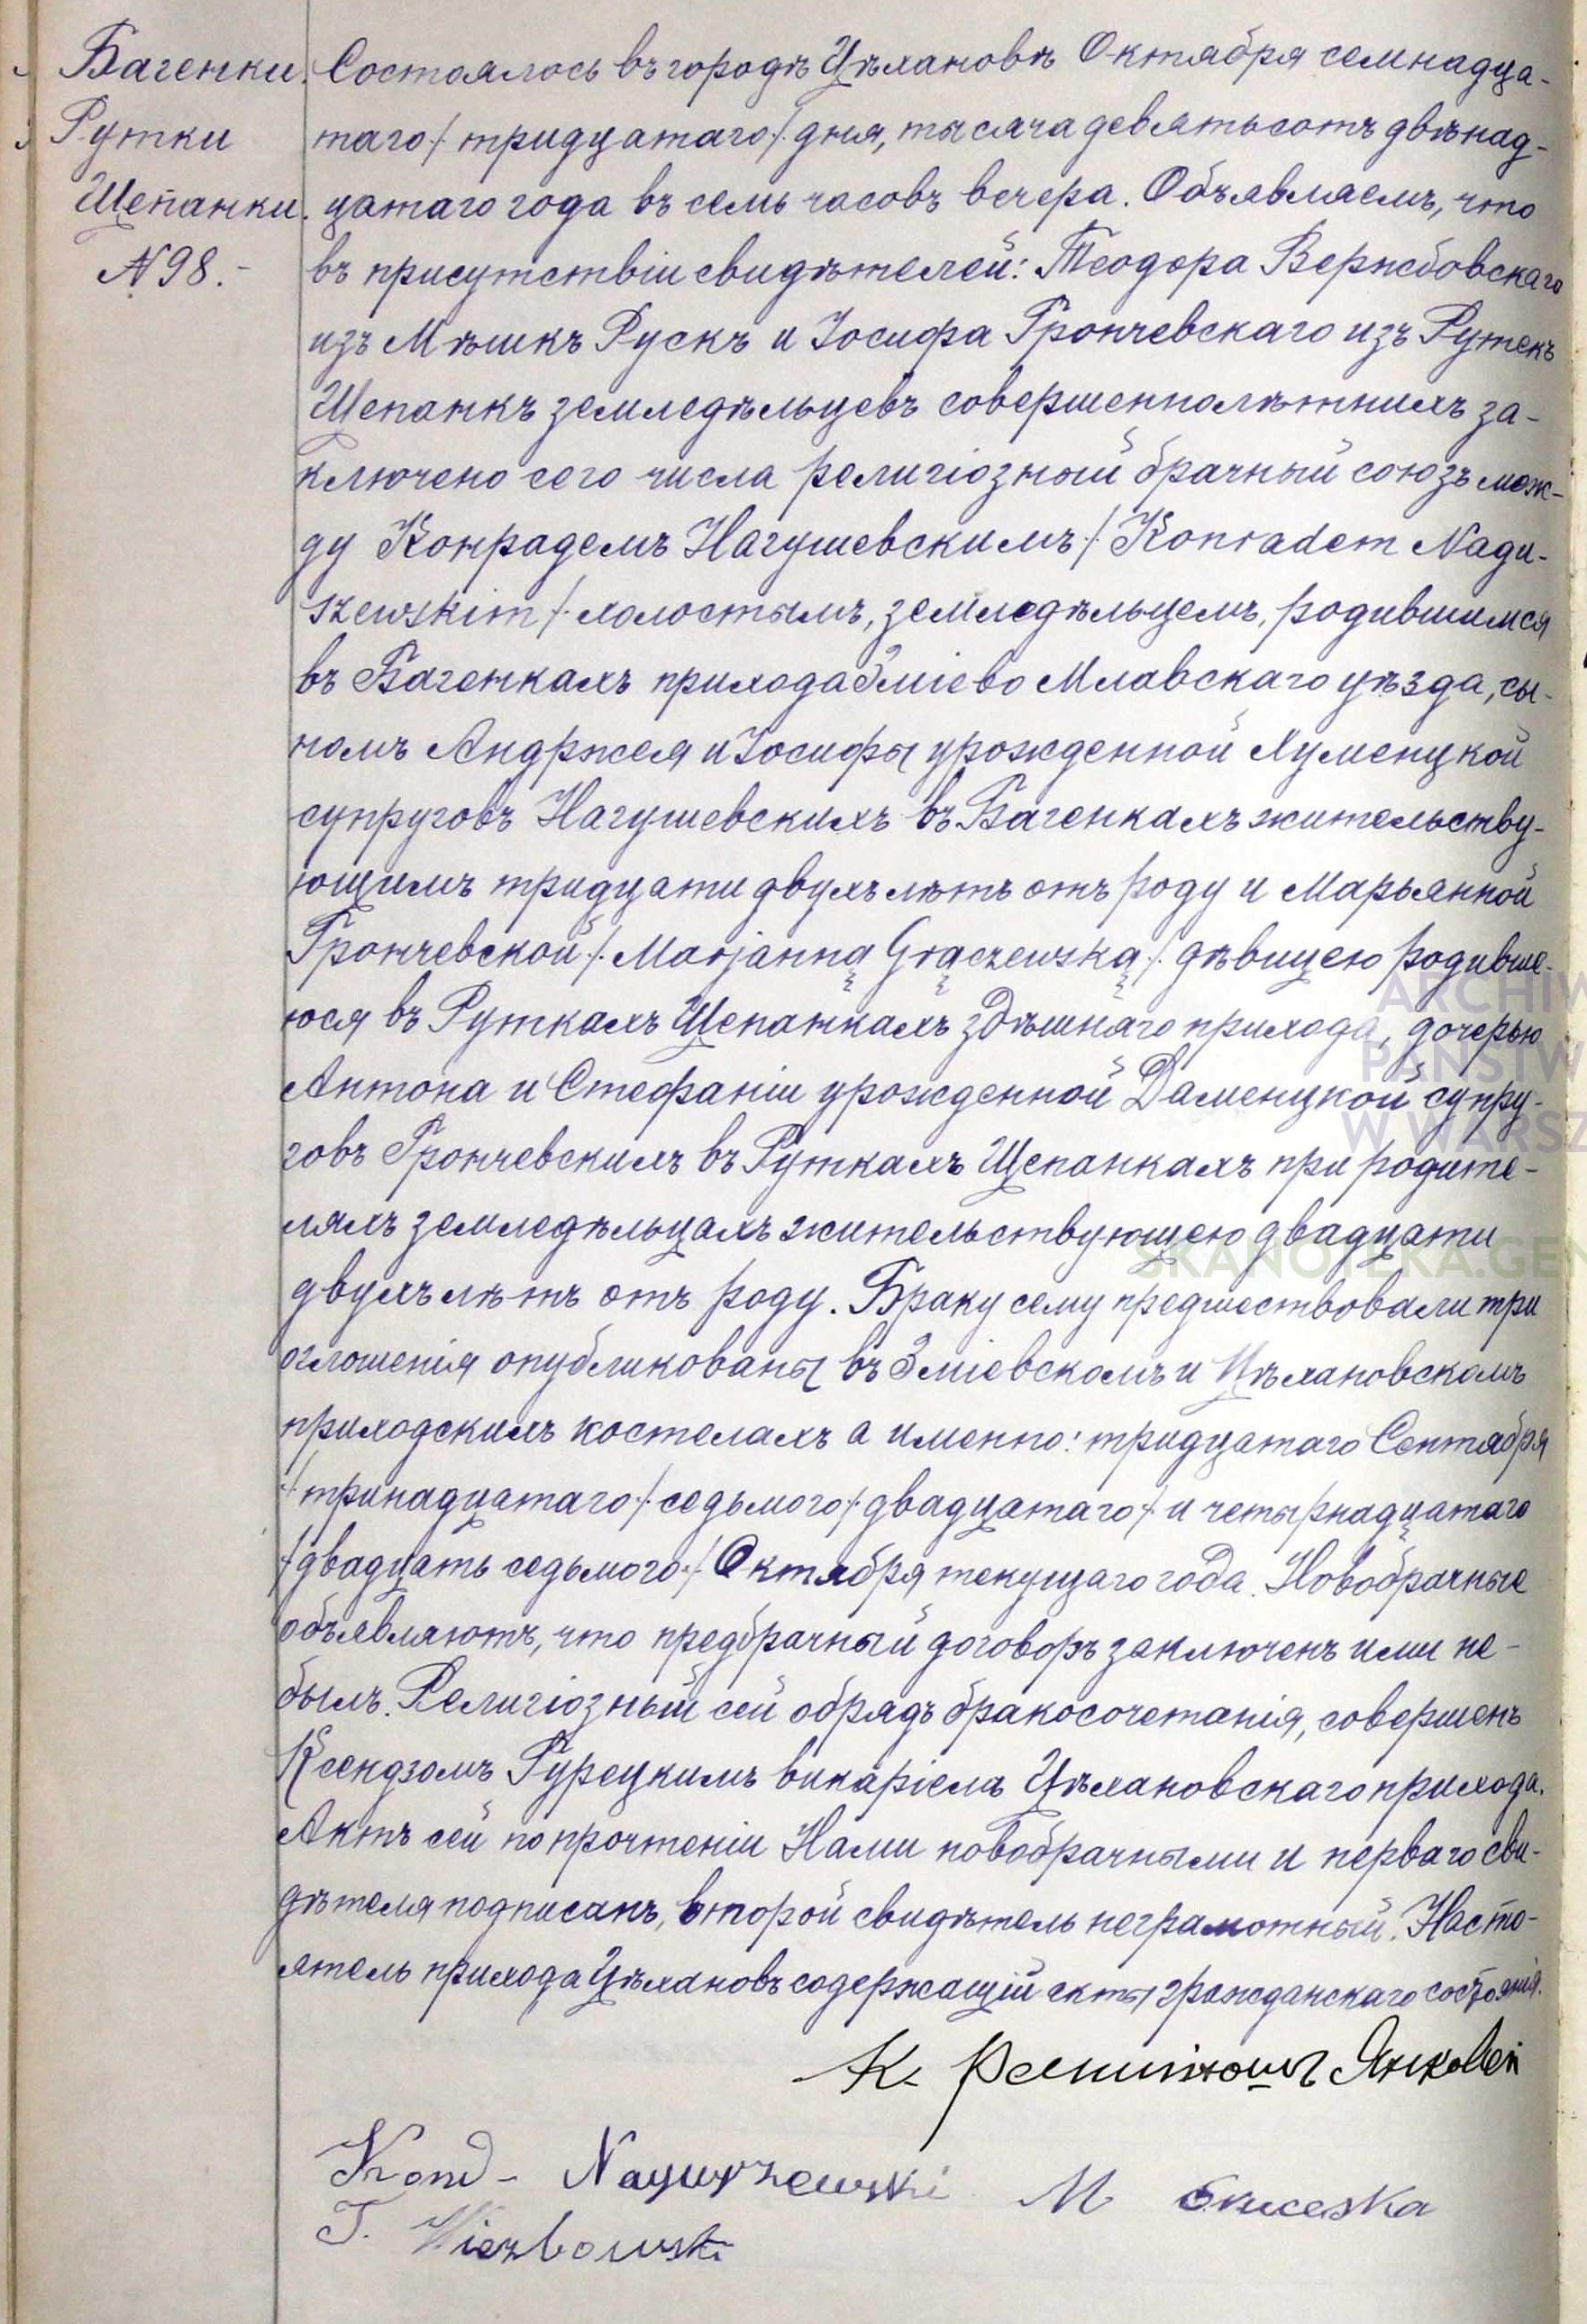 Багенки.
Рутки
Щепанки.
№ 98.-
Состоялось въ городѣ Цѣхановѣ Октября семнадца-
таго /. тридцатаго /. дня, тысяча девятьсотъ двѣнад-
цатаго года въ семь часовъ вечера. Объявляемъ, что
въ присутствіи свидѣтелей: Теодора Вержбовскаго
изъ Мѣшкъ Рускъ и Іосифа Грончевскаго изъ Рутекъ
Щепанкъ земледѣльцевъ совершеннолѣтнихъ за-
ключено сего числа религіозный брачный союзъ меж-
ду Конрадемъ Нагушевскимъ /. Konradem Nagu-
szewskim /. холостымъ, земледѣльцемъ, родившимся
въ Багенкахъ прихода Зміево Млавскаго уѣзда, сы-
номъ Андржея и Іосифы урожденной Хуменцкой
супруговъ Нагушевскихъ въ Багенкахъ жительству-
ющимъ тридцати двухъ лѣтъ отъ роду и Марьянной
Грончевской /. Marjanną Grączewską /. дѣвицею родивше-
юся въ Руткахъ Щепанкахъ здѣшняго прихода, дочерью
Антона и Стефаніи урожденной Даменцкой супру-
говъ Грончевскихъ въ Руткахъ Щепанкахъ при родите-
ляхъ земледѣльцахъ жительствующею двадцати
двухъ лѣтъ отъ роду. Браку сему предшествовали три
оглошенія опубликованы въ Зміевскомъ и Цѣхановскомъ
приходскихъ костелахъ а именно: тридцатаго Сентября
/. тринадцатаго /. седьмого /. двадцатаго /. и четырнадцатаго
/. двадцать седьмого /. Октября текущаго года. Новобрачные
объявляютъ, что предбрачный договоръ заключенъ ими не-
былъ. Религіозный сей обрядъ бракосочетанія, совершенъ
Ксендзомъ Гурецкимъ викаріемъ Цѣхановскаго прихода.
Актъ сей по прочтеніи Нами новобрачными и перваго сви-
дѣтеля подписанъ, второй свидѣтель неграмотный. Насто-
ятель прихода Цѣхановъ содержащій акты гражданскаго состоянія.
К. Янковск
Kond- Naguszewski M
T. Wierzbowski
ARCHIW
PAŃSTW
W WARSZ
SKANOTEKA.GEN